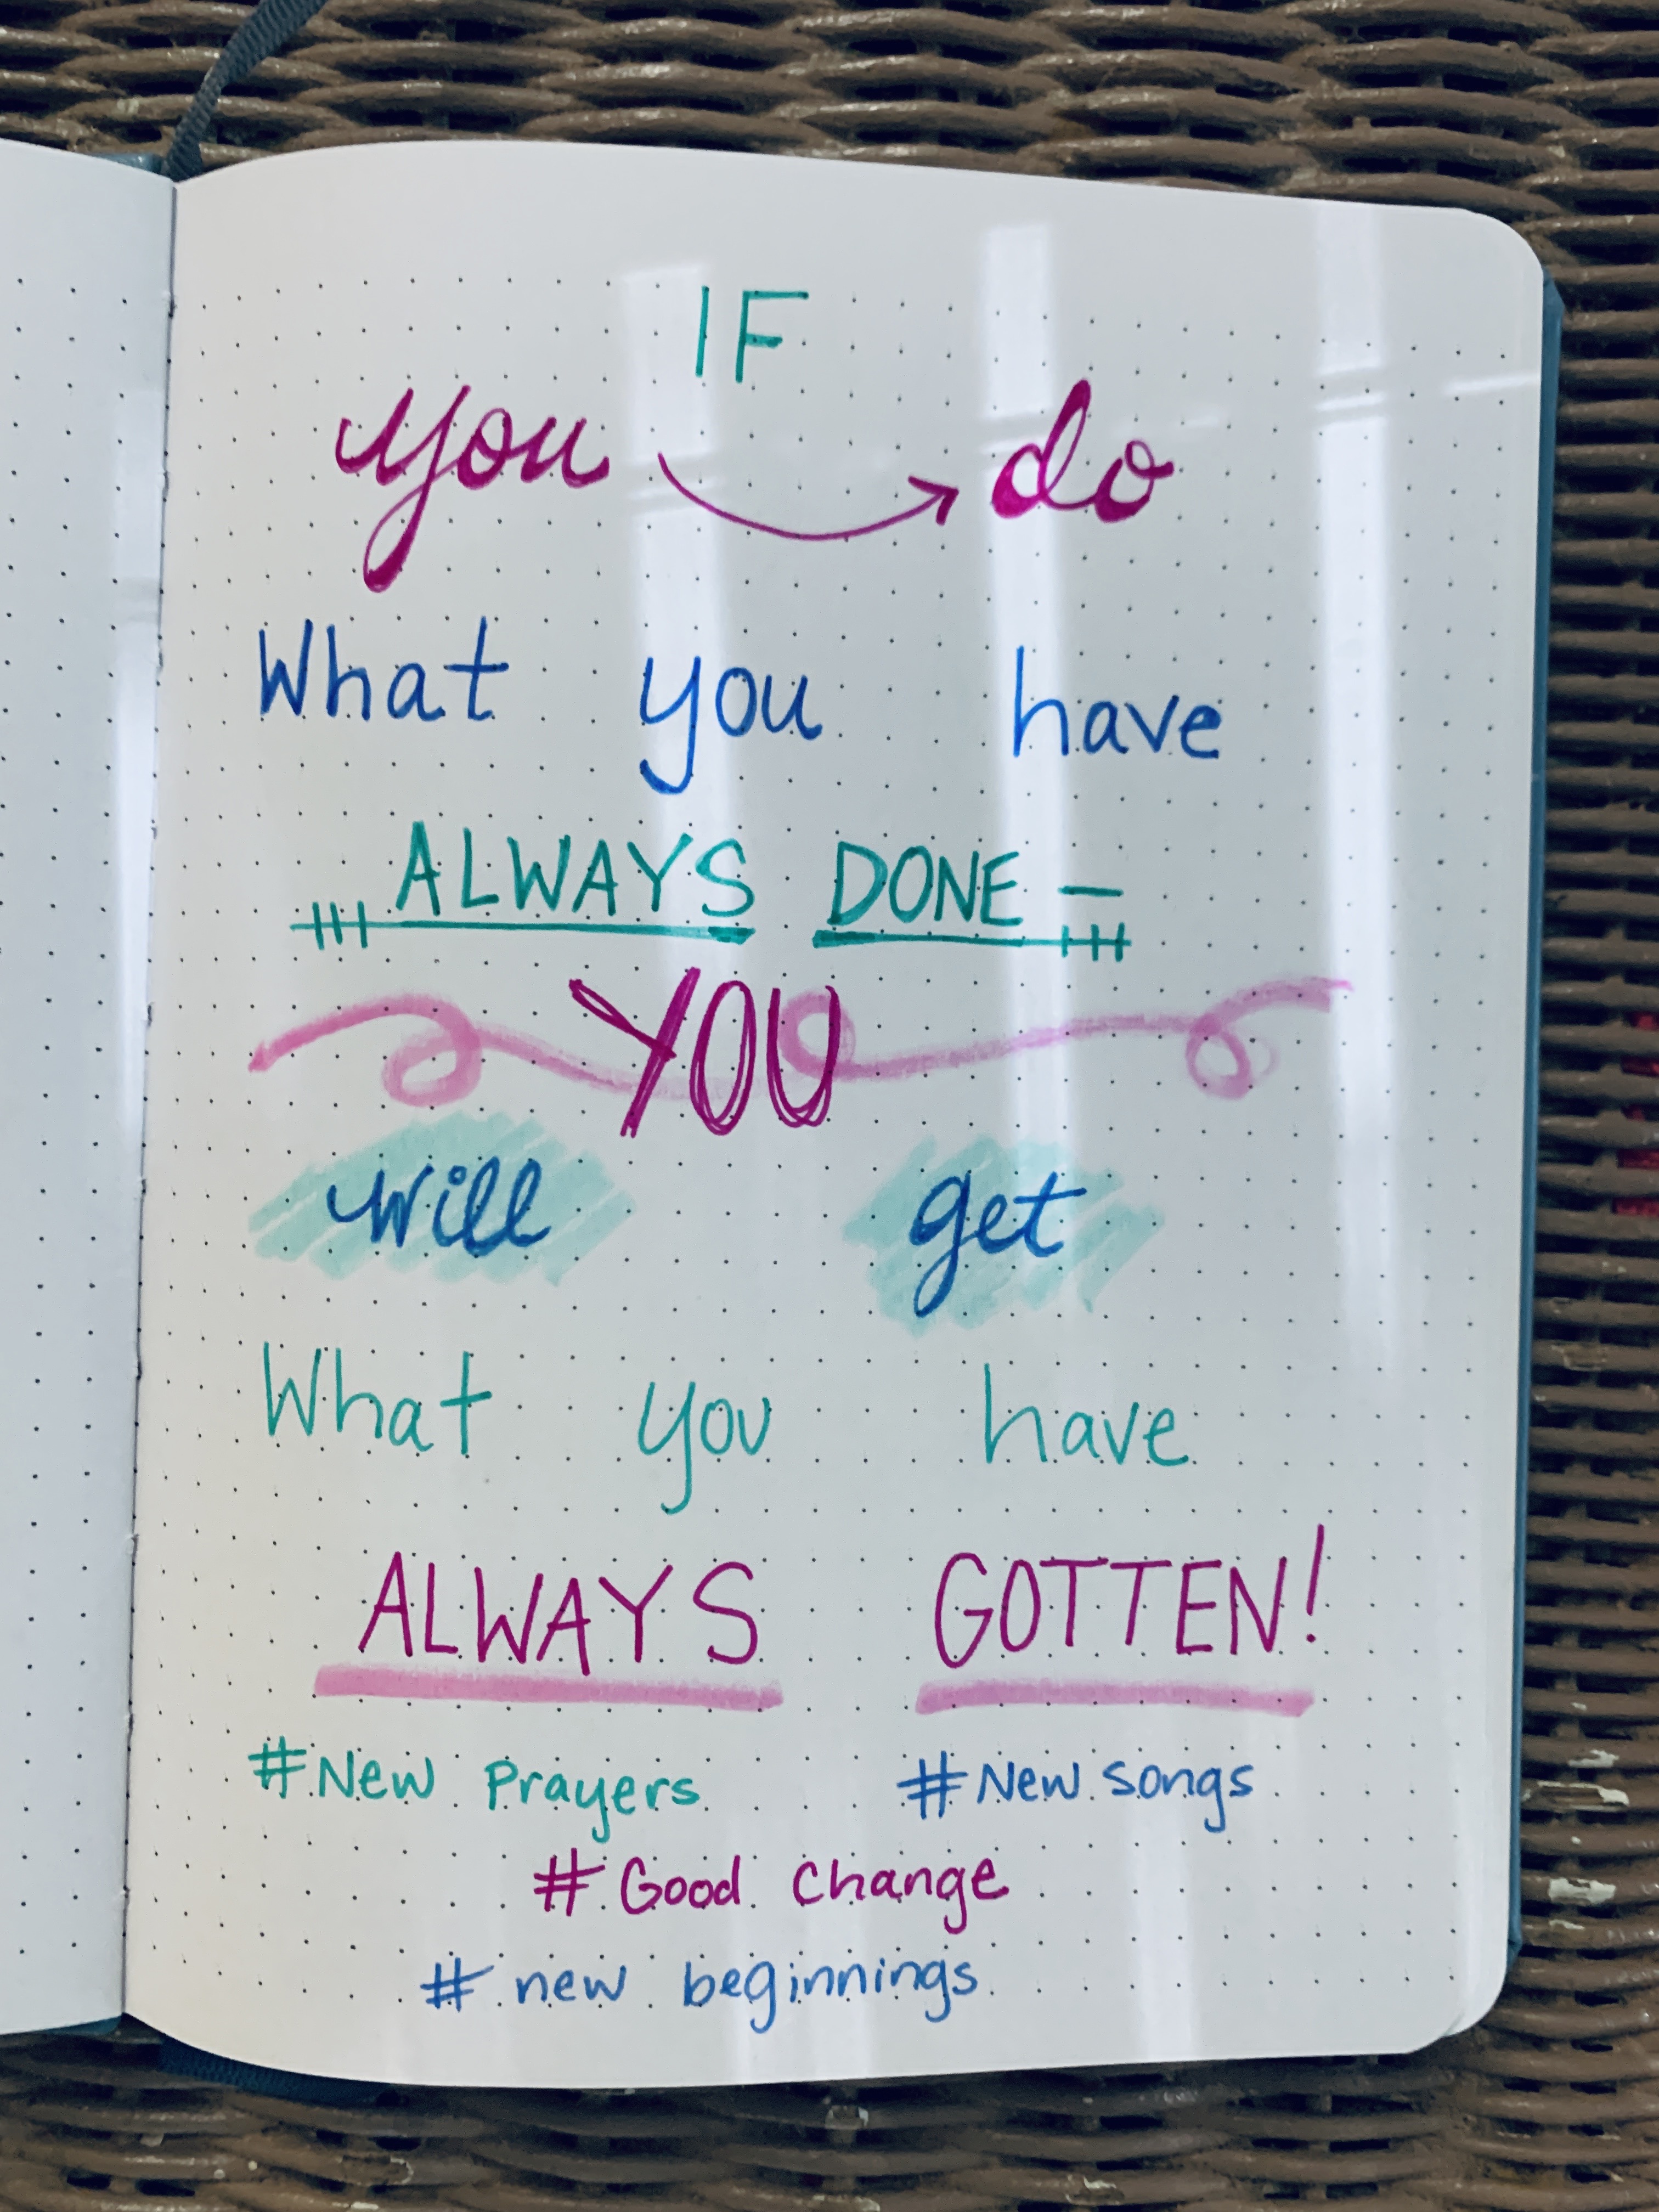 IF
you do
What you have
ALWAYS DONE –
YOU
will get
What you have
ALWAYS GOTTEN!
#New Prayers #New songs
#Good change
#new beginnings